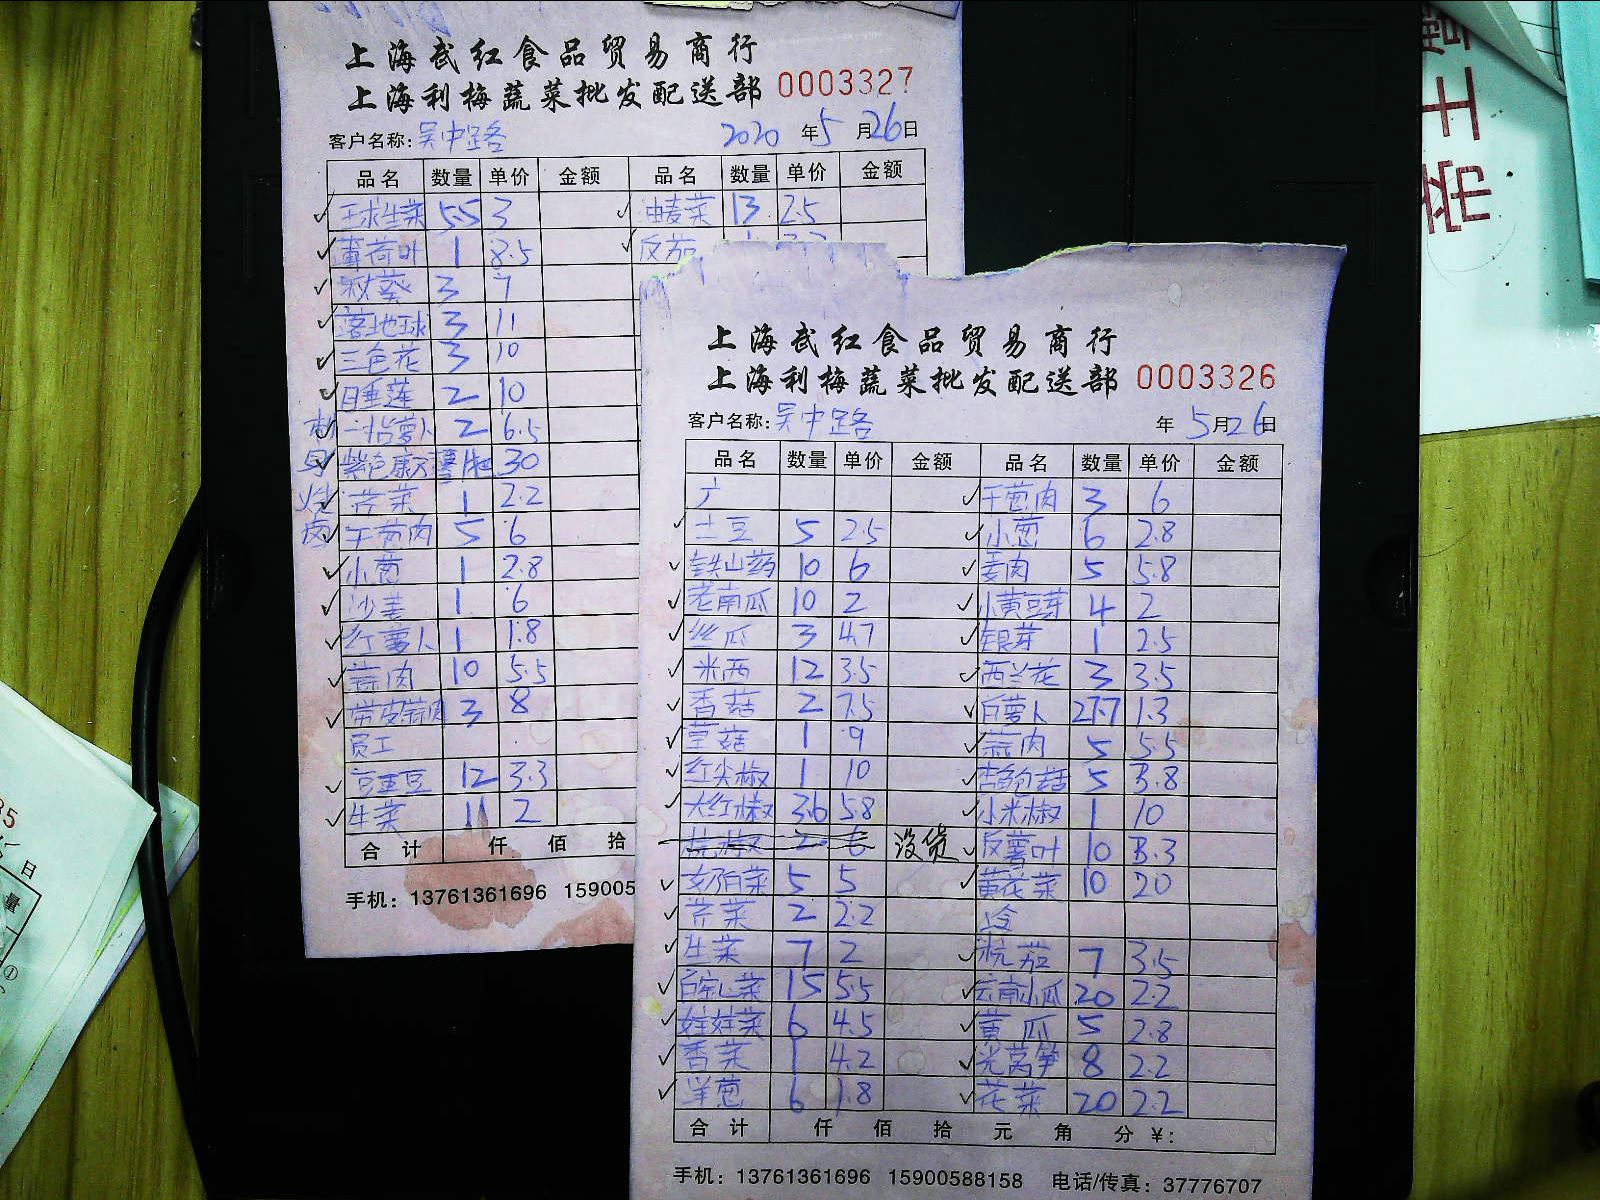 上海武红食品贸易商行
上海利梅蔬菜批发配送部 0003327
客户名称: 吴中路 2020 年 5 月 26 日
品名 数量 单价 金额 品名 数量 单价 金额
球生菜 5.5 3 油麦菜 13 2.5
薄荷叶 1 8.5 反茄
秋葵 3 7
落地球 3 11
三色花 3 10
日睡莲 2 10
手指萝卜 2 6.5
紫色康乃馨 1 30
芹菜 1 2.2
干葱肉 5 6
小葱 1 2.8
沙姜 1 6
红萝卜 1 1.8
蒜肉 10 5.5
带皮蒜肉 3 8
员工
豆 12 3.3
生菜 11 2
合计 仟 佰 拾
手机: 13761361696 159005
上海武红食品贸易商行
上海利梅蔬菜批发配送部 0003326
客户名称: 吴中路 年 5 月 26 日
品名 数量 单价 金额 品名 数量 单价 金额
广 干葱肉 3 6
土豆 5 2.5 小葱 6 2.8
铁山药 10 6 姜肉 5 5.8
老南瓜 10 2 小黄豆芽 4 2
丝瓜 3 4.7 银芽 1 2.5
米西 12 3.5 西兰花 3 3.5
香菇 2 7.5 白萝卜 27.7 1.3
草菇 1 9 蒜肉 5 5.5
红尖椒 1 10 杏鲍菇 5 3.8
大红椒 3.6 5.8 小米椒 1 10
2 6 没货 反薯叶 10 3.3
奶白菜 5 5 黄花菜 10 20
芹菜 2 2.2 冷
生菜 7 2 杭茄 7 3.5
白乳菜 15 5.5 云南小瓜 20 2.2
娃娃菜 6 4.5 黄瓜 5 2.8
香菜 1 4.2 光莴笋 8 2.2
洋葱 6 1.8 花菜 20 2.2
合计 仟 佰 拾 元 角 分 ¥:
手机: 13761361696 15900588158 电话/传真: 37776707